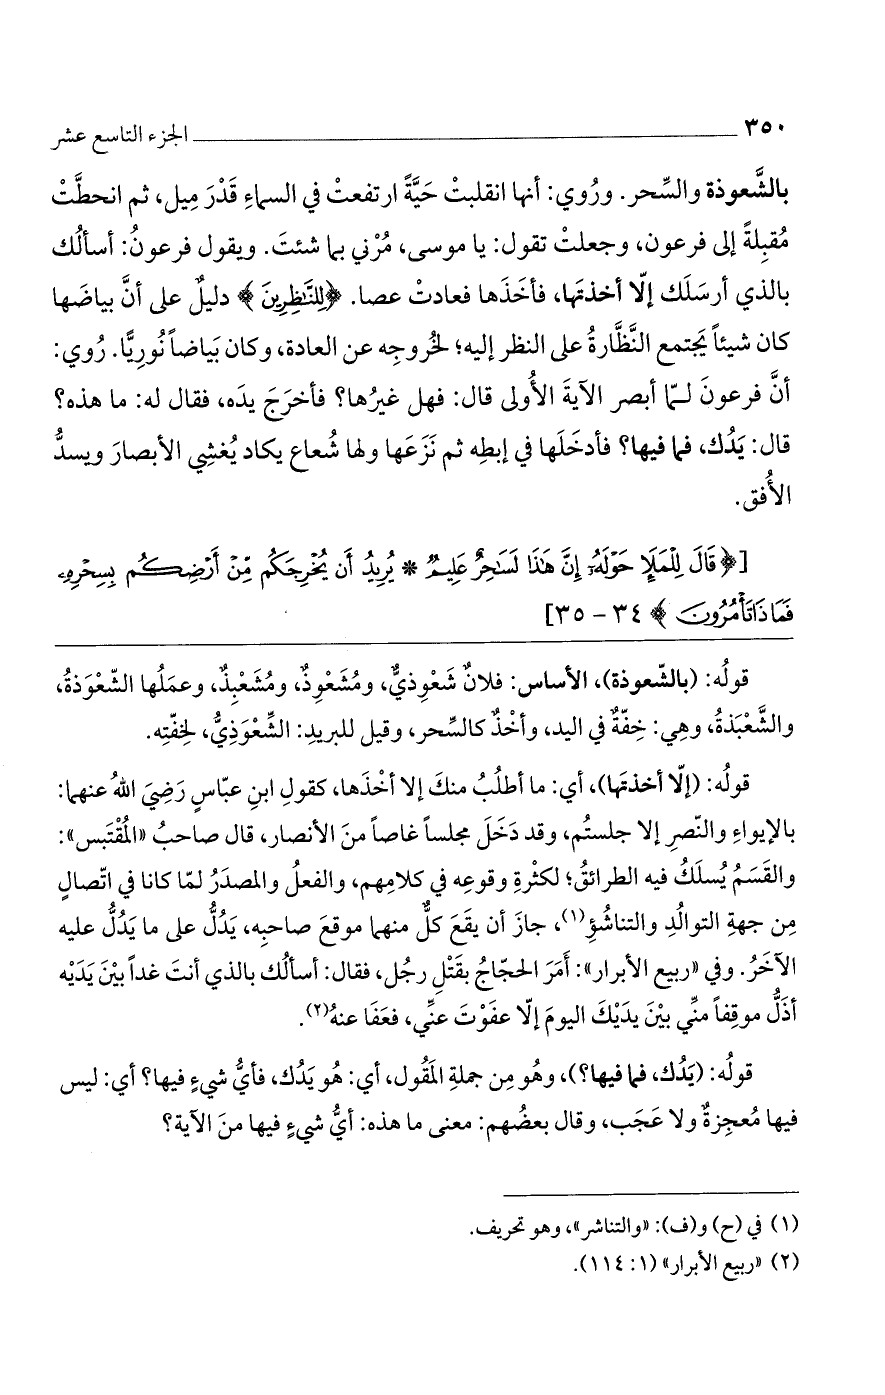 ٣٥٠ الجزء التاسع عشر
بالشَّعوذة والسِّحر. ورُوي: أنها انقلبتْ حَيَّةً ارتفعتْ في السماءِ قَدْرَ مِيل، ثم انحطَّتْ
مُقبِلةً إلى فرعون، وجعلتْ تقول: يا موسى، مُرْني بما شئتَ. ويقول فرعونُ: أسألُك
بالذي أرسَلَك إلّا أخذتَها، فأخَذَها فعادتْ عصا. ﴿لِلنَّٰظِرِينَ﴾ دليلٌ على أنَّ بياضَها
كان شيئاً يَجتمع النَّظَّارةُ على النظر إليه؛ لخُروجِه عن العادة، وكان بَياضاً نُوريًّا. رُوي:
أنَّ فرعونَ لـمّا أبصر الآيةَ الأُولى قال: فهل غيرُها؟ فأخرَجَ يدَه، فقال له: ما هذه؟
قال: يَدُك، فما فيها؟ فأدخَلَها في إبطِه ثم نَزَعَها ولها شُعاع يكاد يُغشِي الأبصارَ ويسدُّ
الأُفق.
[﴿قَالَ لِلْمَلَإِ حَوْلَهُۥٓ إِنَّ هَٰذَا لَسَٰحِرٌ عَلِيمٌ * يُرِيدُ أَن يُخْرِجَكُم مِّنْ أَرْضِكُم بِسِحْرِهِۦ
فَمَاذَا تَأْمُرُونَ﴾ ٣٤ - ٣٥]
قولُه: (بالشّعوذة)، الأساس: فلانٌ شَعْوِذيٌّ، ومُشَعْوِذٌ، ومُشَعْبِذٌ، وعمَلُها الشّعْوَذةُ،
والشَّعْبَذةُ، وهي: خِفّةٌ في اليد، وأخْذٌ كالسِّحر، وقيل للبريد: الشِّعْوَذِيُّ، لِخفّتِه.
قولُه: (إلّا أخذتَها)، أي: ما أطلُبُ منكَ إلا أخْذَها، كقولِ ابنِ عبّاسٍ رَضِيَ اللهُ عنهما:
بالإيواءِ والنّصرِ إلا جلستُم، وقد دَخَلَ مجلساً غاصاً منَ الأنصار، قال صاحبُ «المُقْتَبس»:
والقَسَمُ يُسلَكُ فيه الطرائقُ؛ لكثْرةِ وقوعِه في كلامِهم، والفعلُ والمصدَرُ لمّا كانا في اتّصالٍ
مِن جهةِ التوالُدِ والتناشُؤِ(١)، جازَ أن يقَعَ كلٌّ منهما موقعَ صاحبِه، يَدُلُّ على ما يَدُلُّ عليه
الآخَرُ. وفي «ربيع الأبرار»: أَمَرَ الحجّاجُ بقَتْلِ رجُل، فقال: أسألُك بالذي أنتَ غداً بيْنَ يَدَيْه
أذَلُّ موقِفاً منِّي بيْنَ يدَيْكَ اليومَ إلّا عفَوْتَ عنِّي، فعَفَا عنهُ(٢).
قولُه: (يَدُك، فما فيها؟)، وهُو مِن جملةِ المَقُول، أي: هُو يَدُك، فأيُّ شيءٍ فيها؟ أي: ليس
فيها مُعجِزةٌ ولا عَجَب، وقال بعضُهم: معنى ما هذه: أيُّ شيءٍ فيها منَ الآية؟
(١) في (ح) و(ف): «والتناشر»، وهو تحريف.
(٢) «ربيع الأبرار» (١: ١١٤).